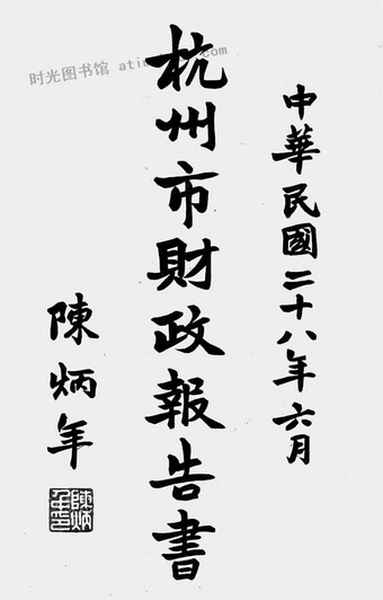 时光图书馆
中華民國二十八年六月
杭州市財政報告書
陳炳年
陳炳年印